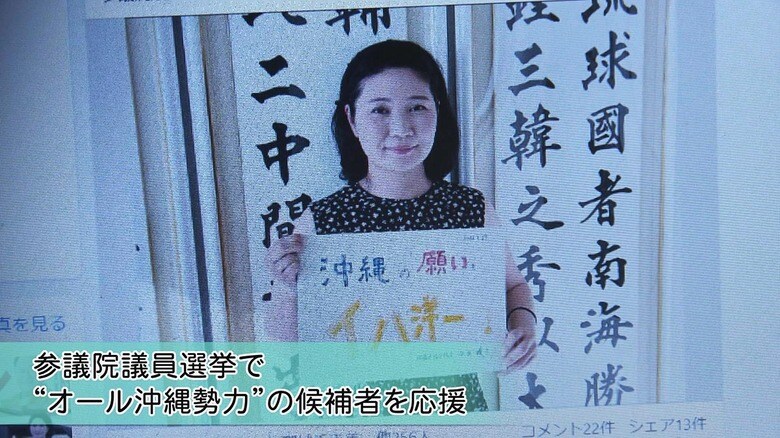 琉球國者南海勝
鍾三韓之秀以大
二中間
沖縄の願い、
イハ洋一
真を見る
参議院議員選挙で
“オール沖縄勢力”の候補者を応援
コメント22件 シェア13件